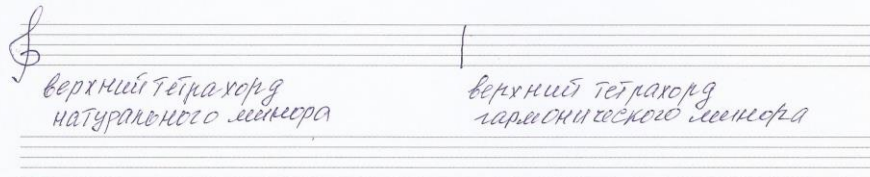 верхний тетрахорд
натурального минора
верхний тетрахорд
гармонического минора